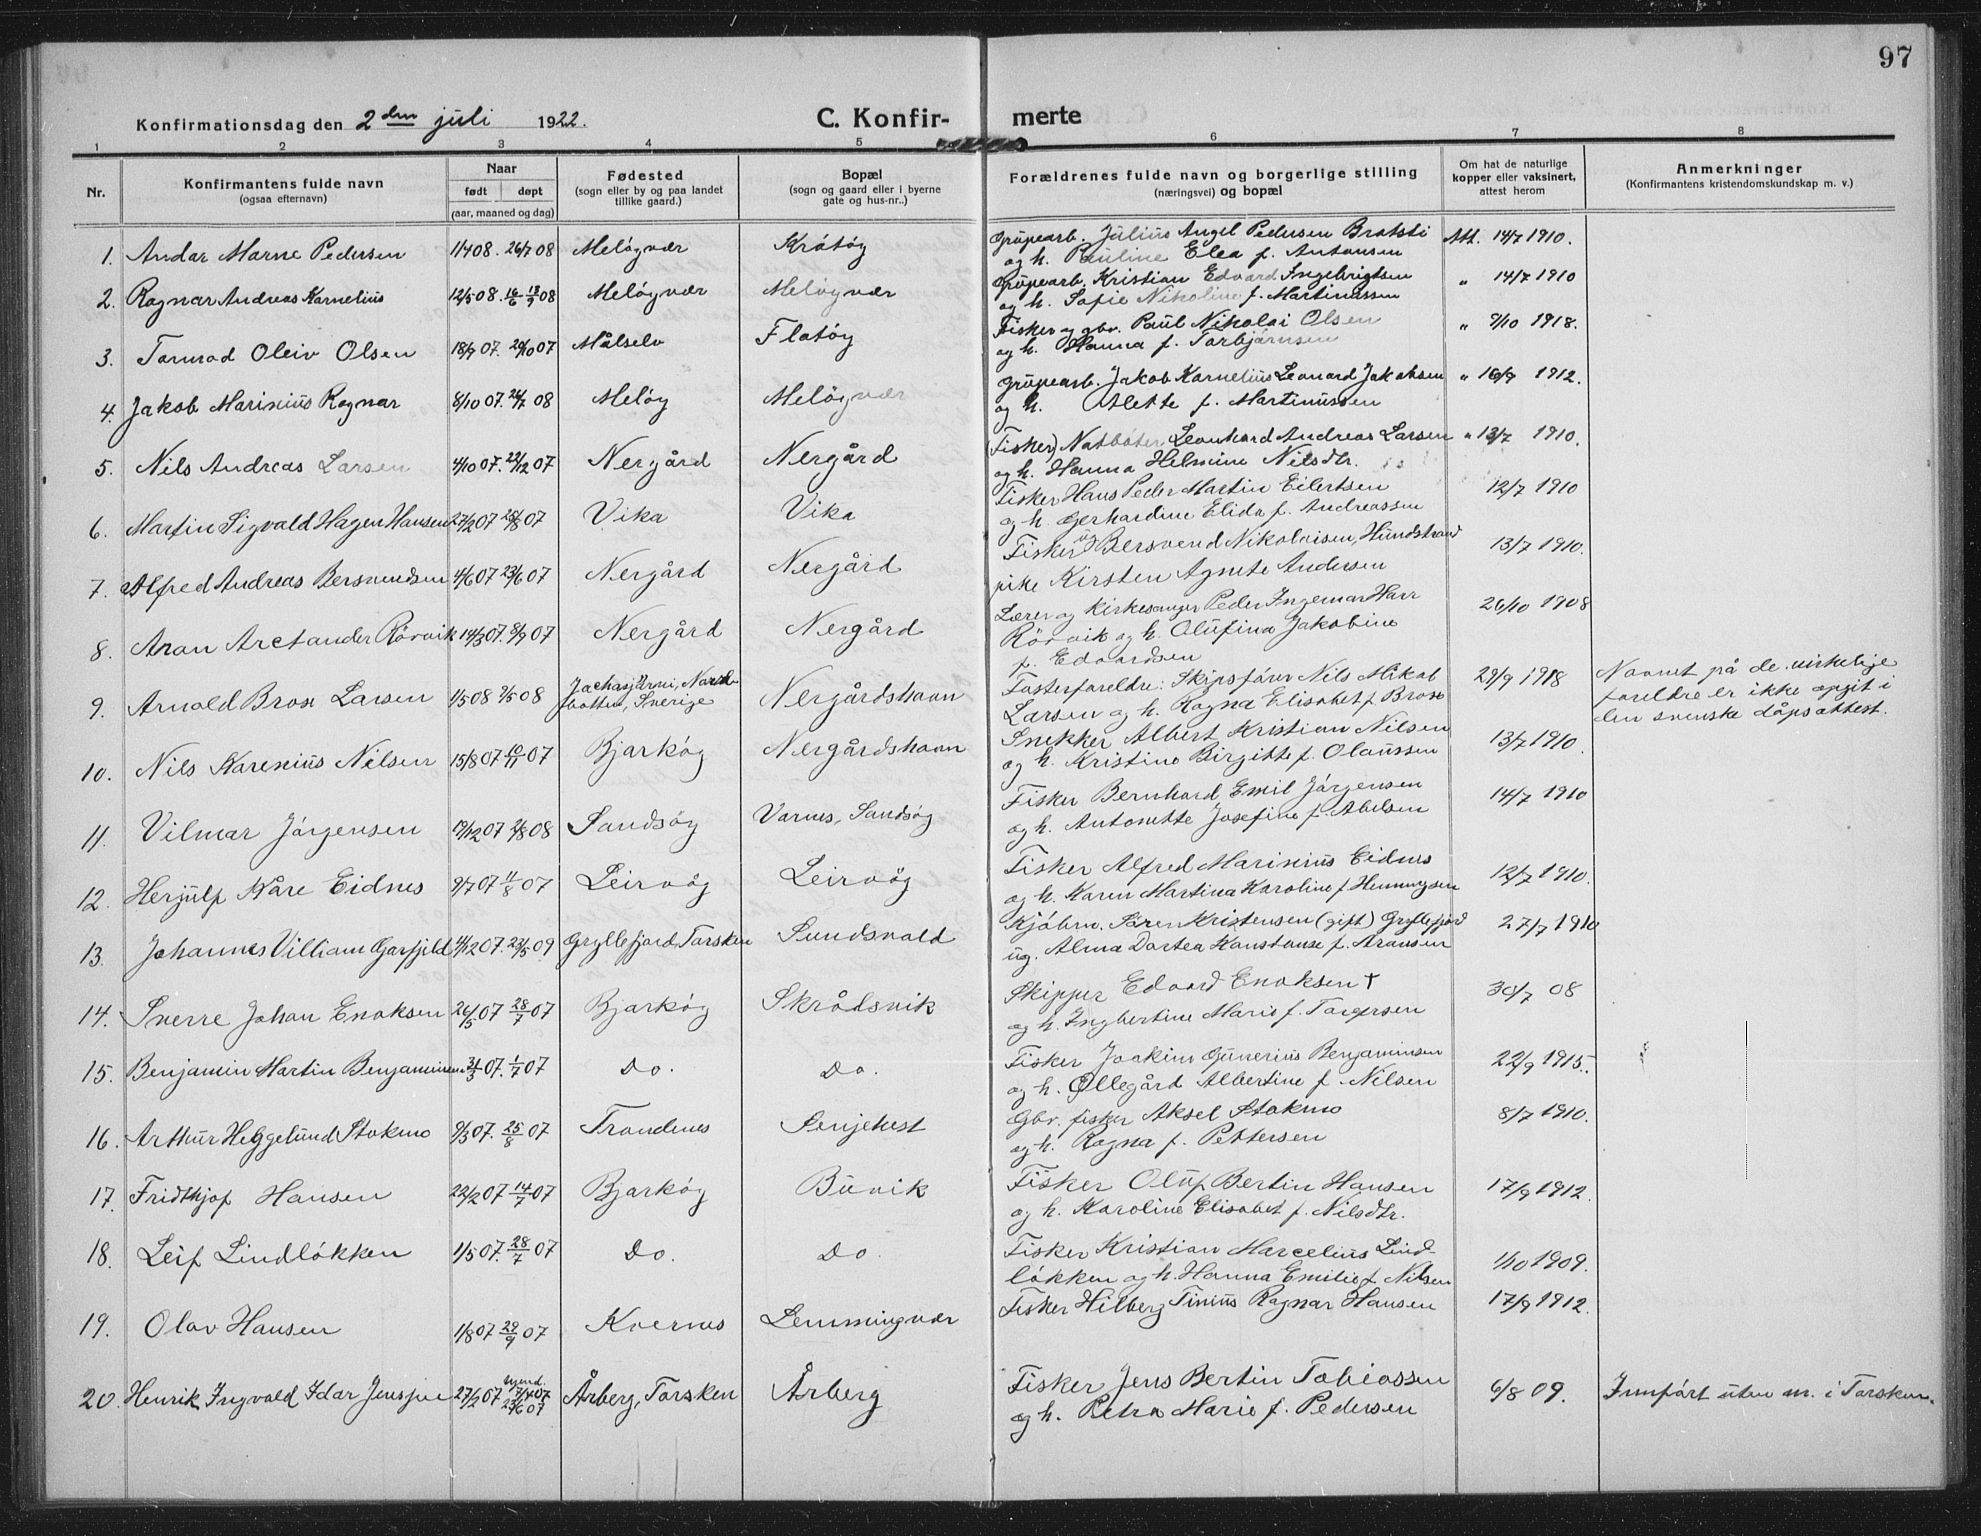 97
Konfirmationsdag den 2den juli 1922.
C. Konfir- merte
1 2 3 4 5 6 7 8
Nr.
Konfirmantens fulde navn
(ogsaa efternavn)
Naar
født døpt
(aar, maaned og dag)
Fødested
(sogn eller by og paa landet
tillike gaard.)
Bopæl
(sogn og gaard eller i byerne
gate og hus-nr..)
Forældrenes fulde navn og borgerlige stilling
(næringsvei) og bopæl
Om hat de naturlige
kopper eller vaksinert,
attest herom
Anmerkninger
(Konfirmantens kristendomskundskap m. v.)
1. Andar Marne Pedersen 11/4 08. 26/7 08 Meløyvær Krøtøy Grubearb. Julius Angel Pedersen Bratsti Att. 14/7 1910.
og h. Pauline Elea f. Antonsen
2. Ragnar Andreas Kornelius 12/5 08. 16/6 - 13/9 08 Meløyvær Meløyvær Grubearb. Kristian Edvard Ingebrigtsen " 14/7 1910
og h. Sofie Nikoline f. Martinussen
3. Tormod Oleiv Olsen 18/9 07. 20/10 07 Målselv Flatøy Fisker og gbr. Paul Nikolai Olsen " 9/10 1918.
og h. Hanna f. Torbjørnsen
4. Jakob Marinius Ragnar 8/10 07. 26/7 08 Meløy Meløyvær Grubearb. Jakob Kornelius Leonard Jakobsen " 16/9 1912.
og h. Alette f. Martinussen
5. Nils Andreas Larsen 4/10 07. 22/12 07 Nergård Nergård (Fisker) Notbøter Leonhard Andreas Larsen " 13/7 1910.
og h. Hanna Helmine Nilsdtr.
6. Martin Sigvald Hagen Hansen 27/2 07 25/8 07 Vika Vika Fisker Hans Peder Martin Eilertsen 12/7 1910
og h. Gerhardine Elida f. Andreassen
7. Alfred Andreas Bersvendsen 4/6 07 23/6 07 Nergård Nergård Fisker ug Bersvend Nikolaisen, Hundstrand 13/7 1910.
pike Kirsten Agnete Andersen
8. Aron Arctander Rörvik 14/3 07. 8/9 07 Nergård Nergård Lærer og kirkesanger Peder Ingemar Harr 26/10 1908
Rörvik og h. Olufina Jakobine
f. Edvardsen
9. Arnold Brox Larsen 1/5 08 3/5 08 Norr-
botten, Sverige Nergårdshavn Fosterforeldre: Skipsfører Nils Mikal 29/9 1918 Navnet på de virkelige
Larsen og h. Ragna Elisabet f. Brox foreldre er ikke opgit i
den svenske dåpsattest.
10. Nils Karenius Nilsen 15/8 07 10/11 07 Bjarkøy Nergårdshavn Snekker Albert Kristian Nilsen 13/7 1910.
og h. Kristine Birgitte f. Olaussen
11. Vilmar Jörgensen 19/12 07 2/8 08 Sandsøy Varnes, Sandsøy Fisker Bernhard Emil Jörgensen 14/7 1910
og h. Antonette Josefine f. Abelsen
12. Herjulf Kåre Eidnes 9/7 07 11/8 07 Leirvåg Leirvåg Fisker Alfred Marinius Eidnes 12/7 1910.
og h. Karen Martina Karoline f. Henningsen
13. Johannes Villiam Garfjeld 4/12 07. 23/5 09 Gryllefjord, Torsken Sundsvold Kjøbm. Sören Kristensen (gift) Gryllefjord 27/7 1910
ug. Alma Dortea Konstanse f. Aronsen
14. Sverre Johan Enoksen 26/5 07 28/7 07 Bjarkøy Skrådsvik Skipper Edvard Enoksen † 30/7 08
og h. Ingbertine Marie f. Torgersen
15. Benjamin Martin Benjaminsen 31/3 07. 1/7 07 Do. Do. Fisker Joakim Gunerius Benjaminsen 22/9 1915.
og h. Ollegård Albertine f. Nilsen
16. Arthur Heggelund Stokmo 9/3 07. 25/8 07 Trondenes Senjehest Gbr. fisker Aksel Stokmo 8/7 1910.
og h. Ragna f. Pettersen
17. Fridthjof Hansen 22/2 07 14/7 07 Bjarkøy Buvik Fisker Oluf Bertin Hansen 17/9 1912.
og h. Karoline Elisabet f. Nilsdtr.
18. Leif Lindløkken 1/5 07. 28/7 07 Do. Do. Fisker Kristian Marcelius Lind- 1/10 1909.
løkken og h. Hanna Emilie f. Nilsen
19. Olav Hansen 1/8 07 29/9 07 Kvernes Lemmingvær Fisker Hilberg Tinius Ragnar Hansen 17/9 1912.
20. Henrik Ingvald Idar Jens 27/2 07 hjemd. 7/4 07 23/6 07 Årberg, Torsken Årberg Fisker Jens Bertin Tobiassen 6/8 09. Innført uten nr. i Torsken.
og h. Petra Marie f. Pedersen